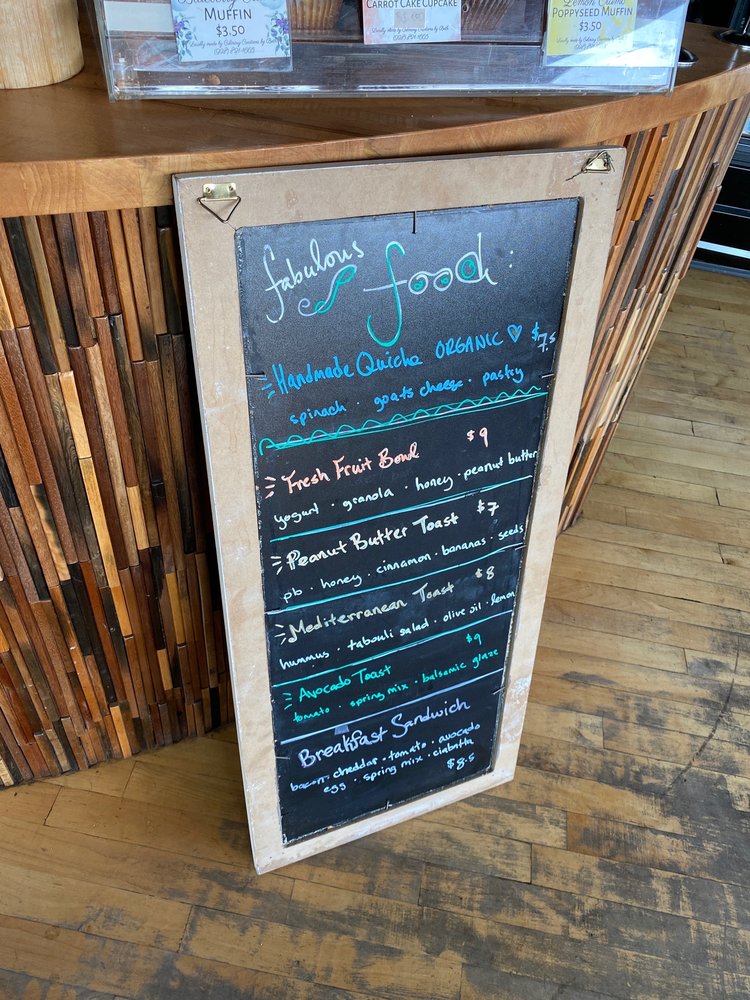 MUFFIN
$3.50
Locally made by Culinary Creations by Beth
CARROT CAKE CUPCAKE
Lemon Crumb
POPPYSEED MUFFIN
$3.50
fabulous
food:
Handmade Quiche ORGANIC ♡ $7.5
spinach · goats cheese · pastry
Fresh Fruit Bowl $9
yogurt · granola · honey · peanut butter
Peanut Butter Toast $7
pb · honey · cinnamon · bananas · seeds
Mediterranean Toast $8
hummus · tabouli salad · olive oil · lemon
Avocado Toast $9
tomato · spring mix · balsamic glaze
Breakfast Sandwich
bacon · cheddar · tomato · avocado
egg · spring mix · ciabatta
$8.5